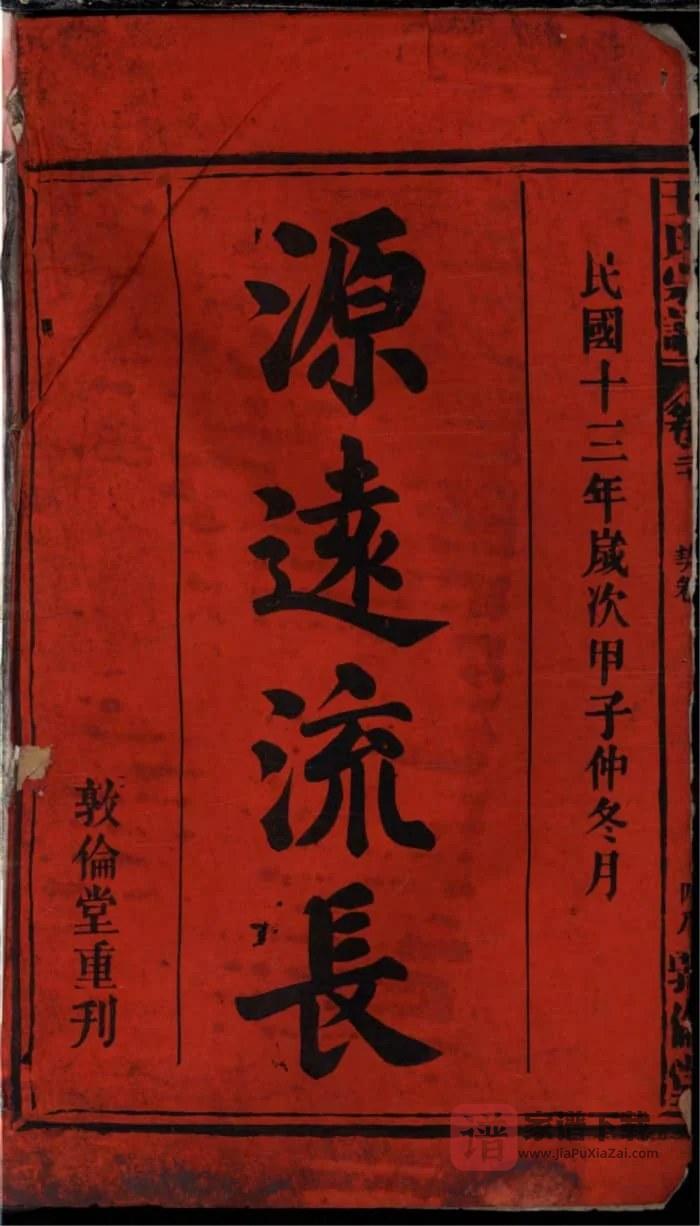 民國十三年歲次甲子仲冬月
源遠流長
敦倫堂重刊
氏宗譜
卷
敦倫堂
谱 家谱下载
www.JiaPuXiaZai.com